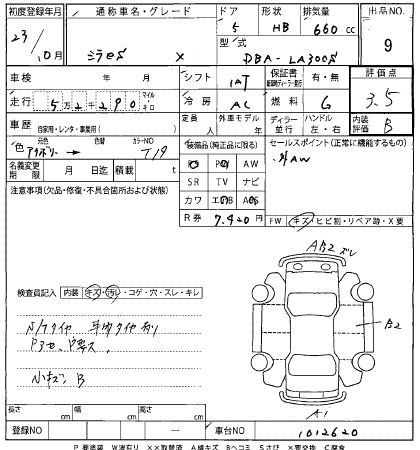 初度登録年月 通称車名・グレード ドア 形状 排気量 出品NO.
23/10月 ミラeS X 5 HB 660 cc 9
型式 DBA-LA300S
車検 年 月 シフト IAT 保証書 有・無 評価点
走行 5万2千290 マイル キロ 冷房 AC 燃料 G 3.5
車歴 自家用・レンタ・事業用( ) 定員 人 外車モデル 年 ディーラー 並行 ハンドル 左・右 内装評価 B
色 元色 アイボリー 色替 カラーNO T19 装備品(純正品に限る) セールスポイント(正常に機能するもの)
名義変更期限 月 日迄 積載 t PS PW AW 社外AW
注意事項(欠品・修復・不具合箇所および状態) SR TV ナビ
カワ エアB ABS
R券 7,920円 FW キズ・ヒビ割・リペア跡・X要
AB2
検査員記入 内装 キズ・汚れ・コゲ・穴・スレ・キレ
S/Tタイヤ
B2
小キズ B
長さ cm 幅 cm 高さ cm A1
登録NO ― 車台NO 1012620
P要塗装 W波有り XX取替済 A線キズ Bヘコミ Sさび X要交換 C腐食